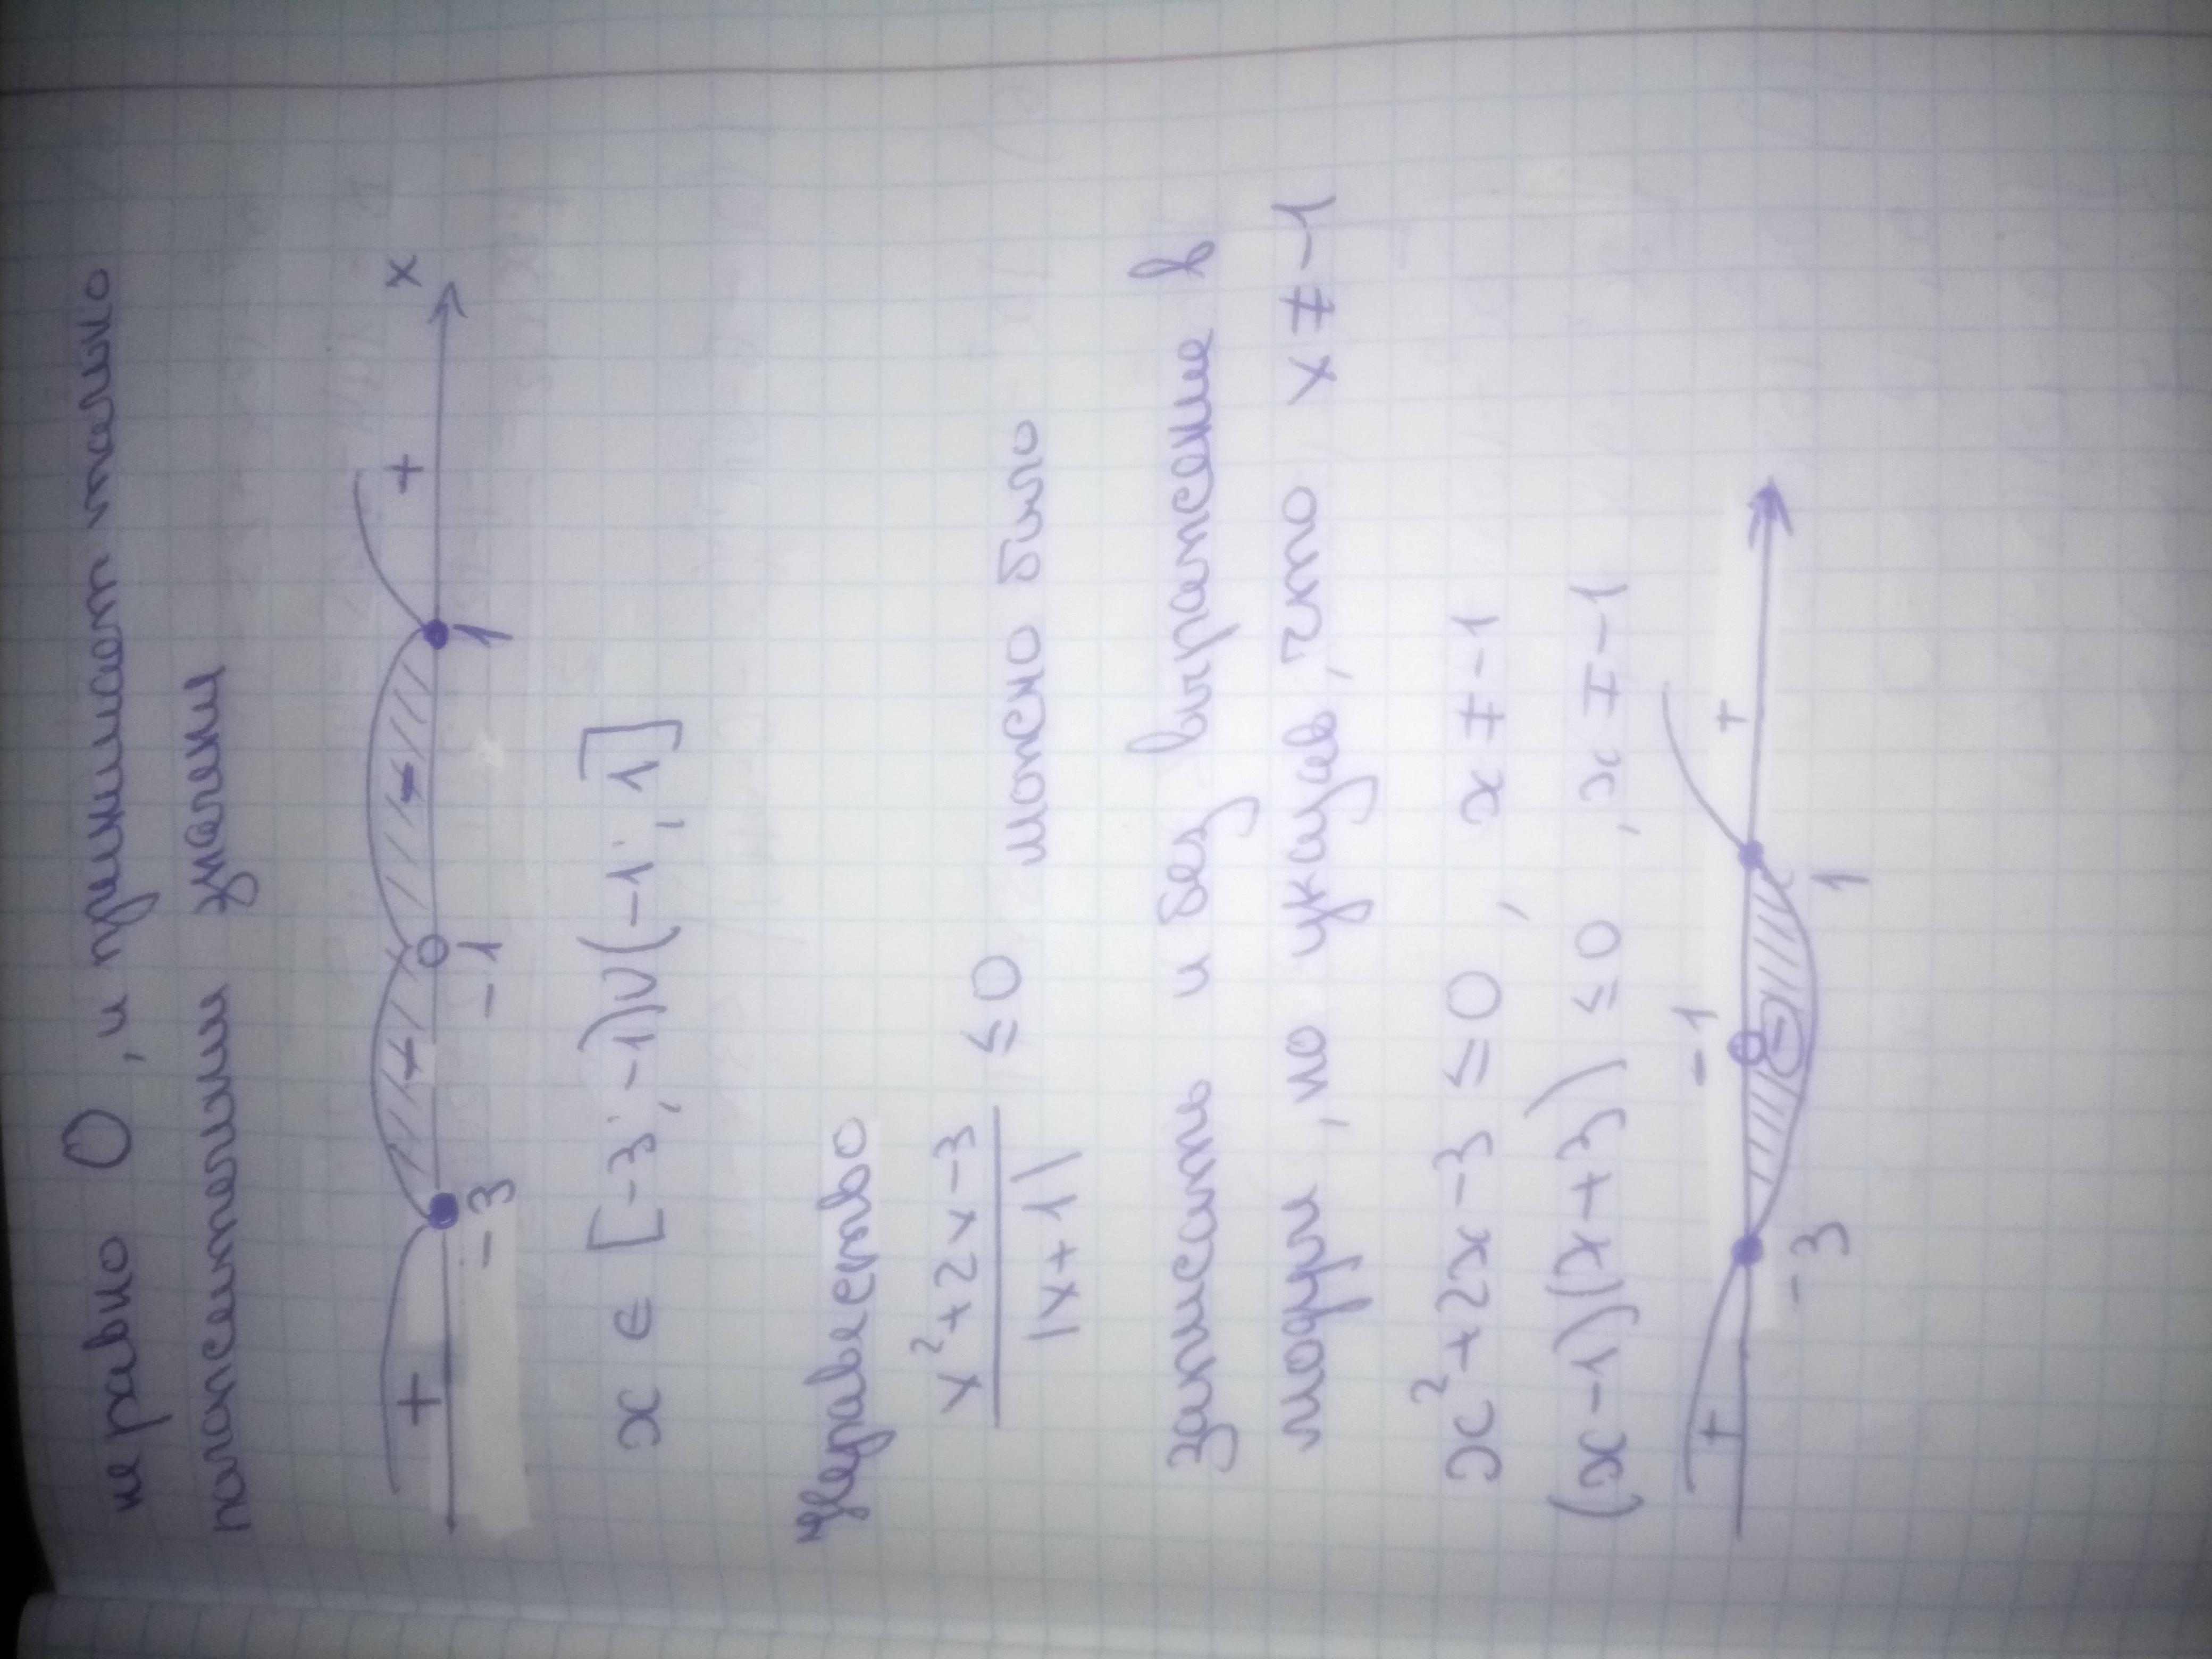 не равно 0, и принимает только
положительные значения
+ - - + x
-3 -1 1
x ∈ [-3; -1) ∪ (-1; 1]
Неравенство
x²+2x-3 / |x+1| ≤ 0 можно было
записать и без выражение в
модули, но указав, что x ≠ -1
x²+2x-3 ≤ 0, x ≠ -1
(x-1)(x+3) ≤ 0, x ≠ -1
+ -1 +
-3 - 1